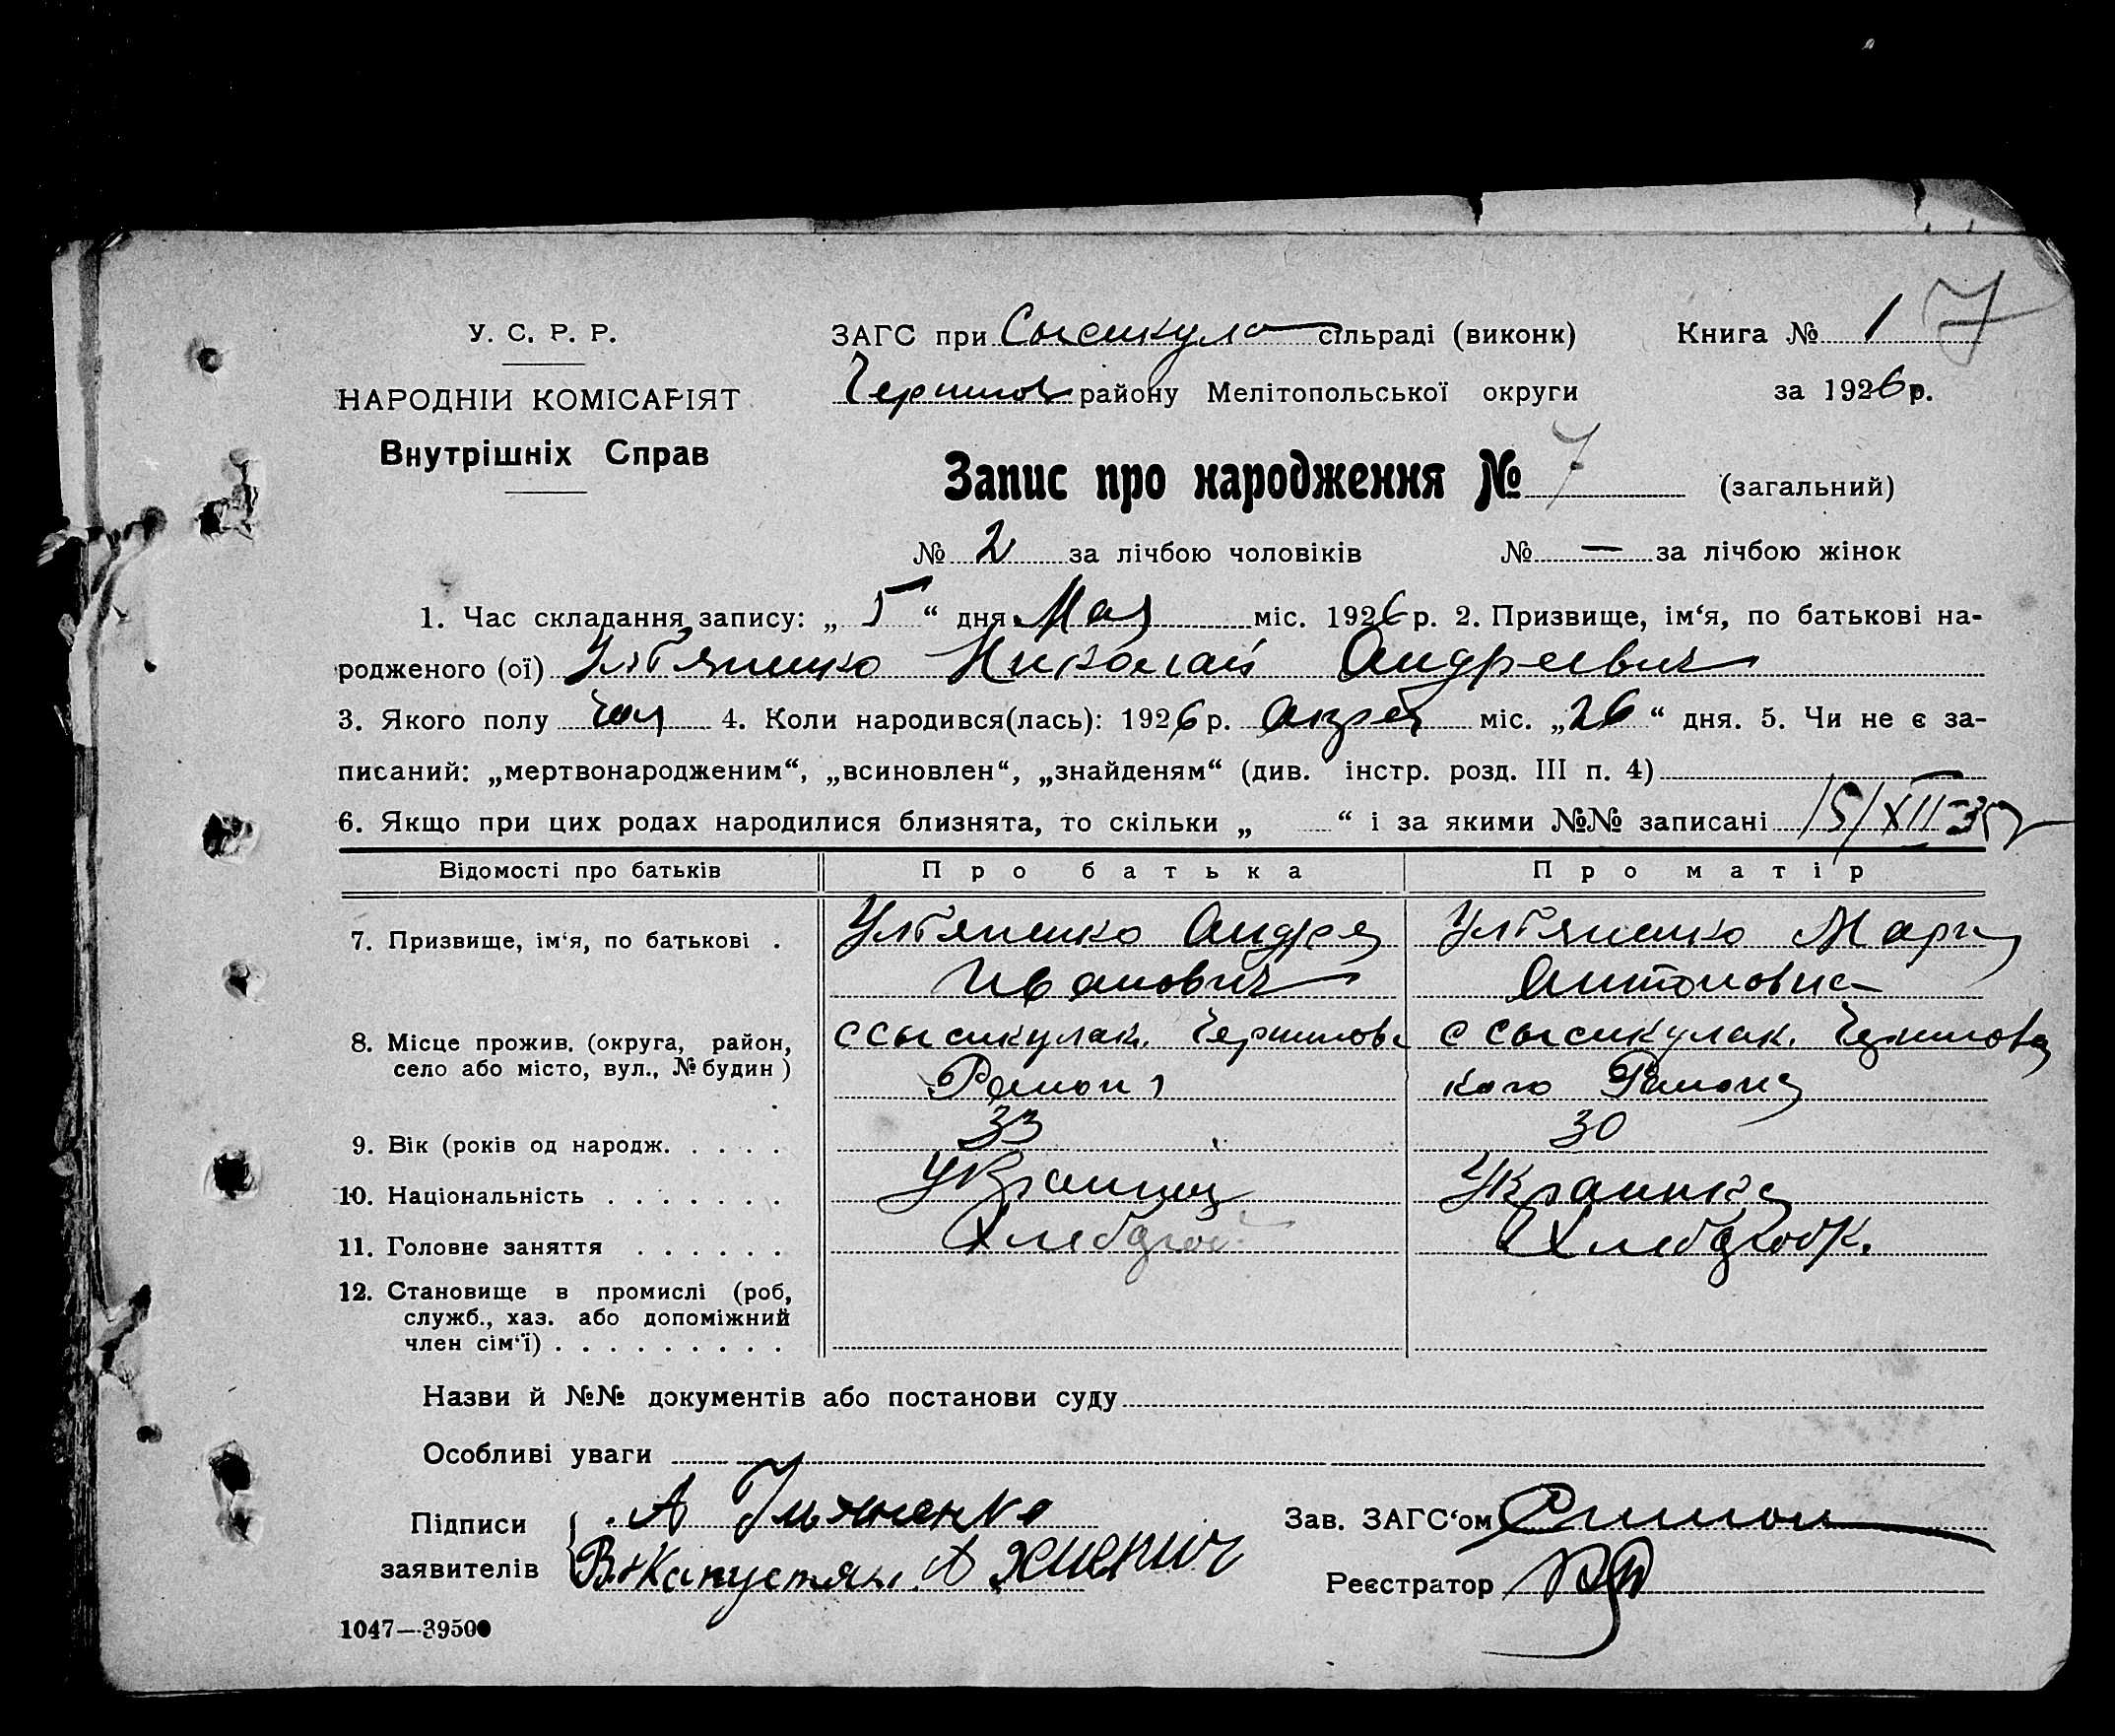 7
У. С. Р. Р.
ЗАГС при Сысикула сільраді (виконк)
Книга № 1
НАРОДНІИ КОМІСАРІЯТ
Чернигов району Мелітопольської округи
за 1926 р.
Внутрішніх Справ
Запис про народження № 7 (загальний)
№ 2 за лічбою чоловіків № — за лічбою жінок
1. Час складання запису: „ 5 “ дня Мая міс. 1926 р. 2. Призвище, ім‘я, по батькові на-
родженого (ої) Ульяненко Николай Андреевич
3. Якого полу 4. Коли народився(лась): 1926 р. міс. „26“ дня. 5. Чи не є за-
писаний: „мертвонародженим“, „всиновлен“, „знайденям“ (див. інстр. розд. III п. 4)
6. Якщо при цих родах народилися близнята, то скільки „ “ і за якими №№ записані
Відомості про батьків Про батька Про матір
7. Призвище, ім‘я, по батькові . Ульяненко Андрей Ульяненко Мария
Иванович Антоновна
8. Місце прожив. (округа, район, с Сысикулак. с Сысикулак.
село або місто, вул., № будин) Района кого Района
9. Вік (років од народж. . . . . 33 30
10. Національність . . . . . . . Украинец Украинка
11. Головне заняття . . . . . . Хлебороб Хлеборобк.
12. Становище в промислі (роб,
служб., хаз. або допоміжний
член сім‘ї) . . . . . . . . .
Назви й №№ документів або постанови суду
Особливі уваги
Підписи А Ульяненко Зав. ЗАГС‘ом
заявителів В. Капустян Реєстратор
1047—39500